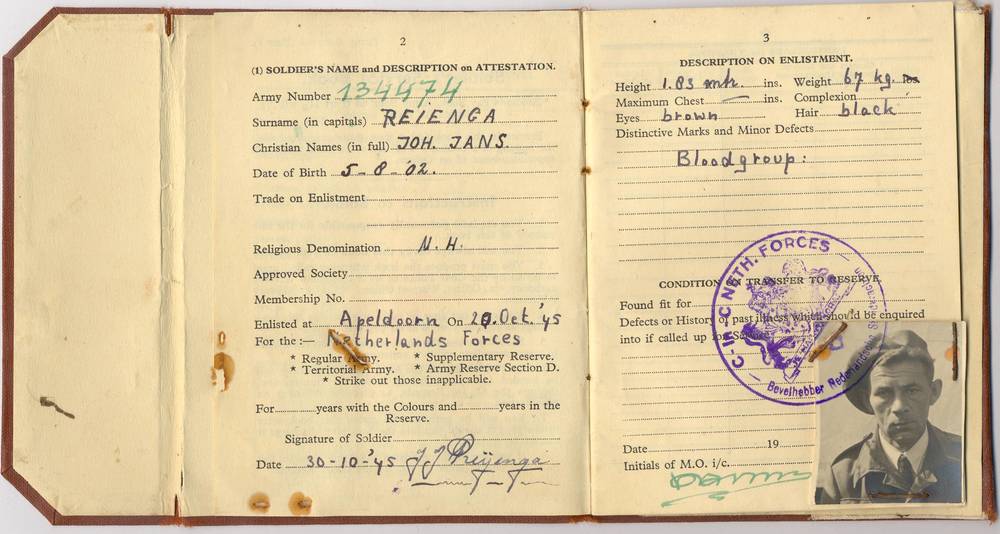 2
(1) SOLDIER'S NAME and DESCRIPTION on ATTESTATION.
Army Number 134474
Surname (in capitals) REIENGA
Christian Names (in full) JOH. JANS.
Date of Birth 5-8-'02.
Trade on Enlistment
Religious Denomination N.H.
Approved Society
Membership No.
Enlisted at Apeldoorn On 20.Oct.'45
For the :— Netherlands Forces
* Regular Army. * Supplementary Reserve.
* Territorial Army. * Army Reserve Section D.
* Strike out those inapplicable.
For years with the Colours and years in the
Reserve.
Signature of Soldier
Date 30-10-'45 JJ Reijenga
3
DESCRIPTION ON ENLISTMENT.
Height 1.83 mtr. ins. Weight 67 kg. lbs.
Maximum Chest — ins. Complexion
Eyes brown Hair black
Distinctive Marks and Minor Defects
Bloodgroup:
CONDITION ON TRANSFER TO RESERVE.
Found fit for
Defects or History of past illness which should be enquired
into if called up for Service
Date 19
Initials of M.O. i/c.
C-IN-C NETH. FORCES
Bevelhebber Nederlandsche Strijdkrachten